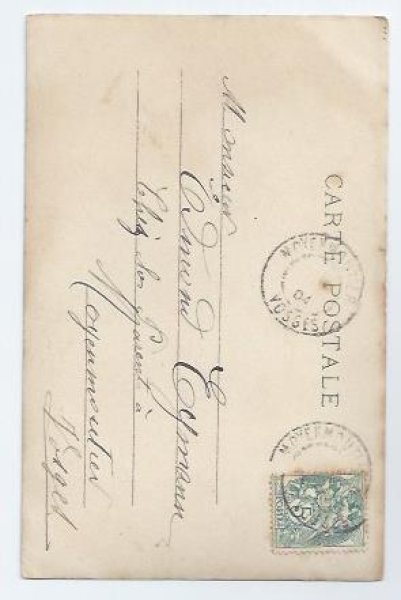 CARTE POSTALE
MOYENMOUTIER
04
VOSGES
MOYENMOU
Monsieur
Edmond Eymann
Chez ses Parents à
Moyenmoutier
Vosges